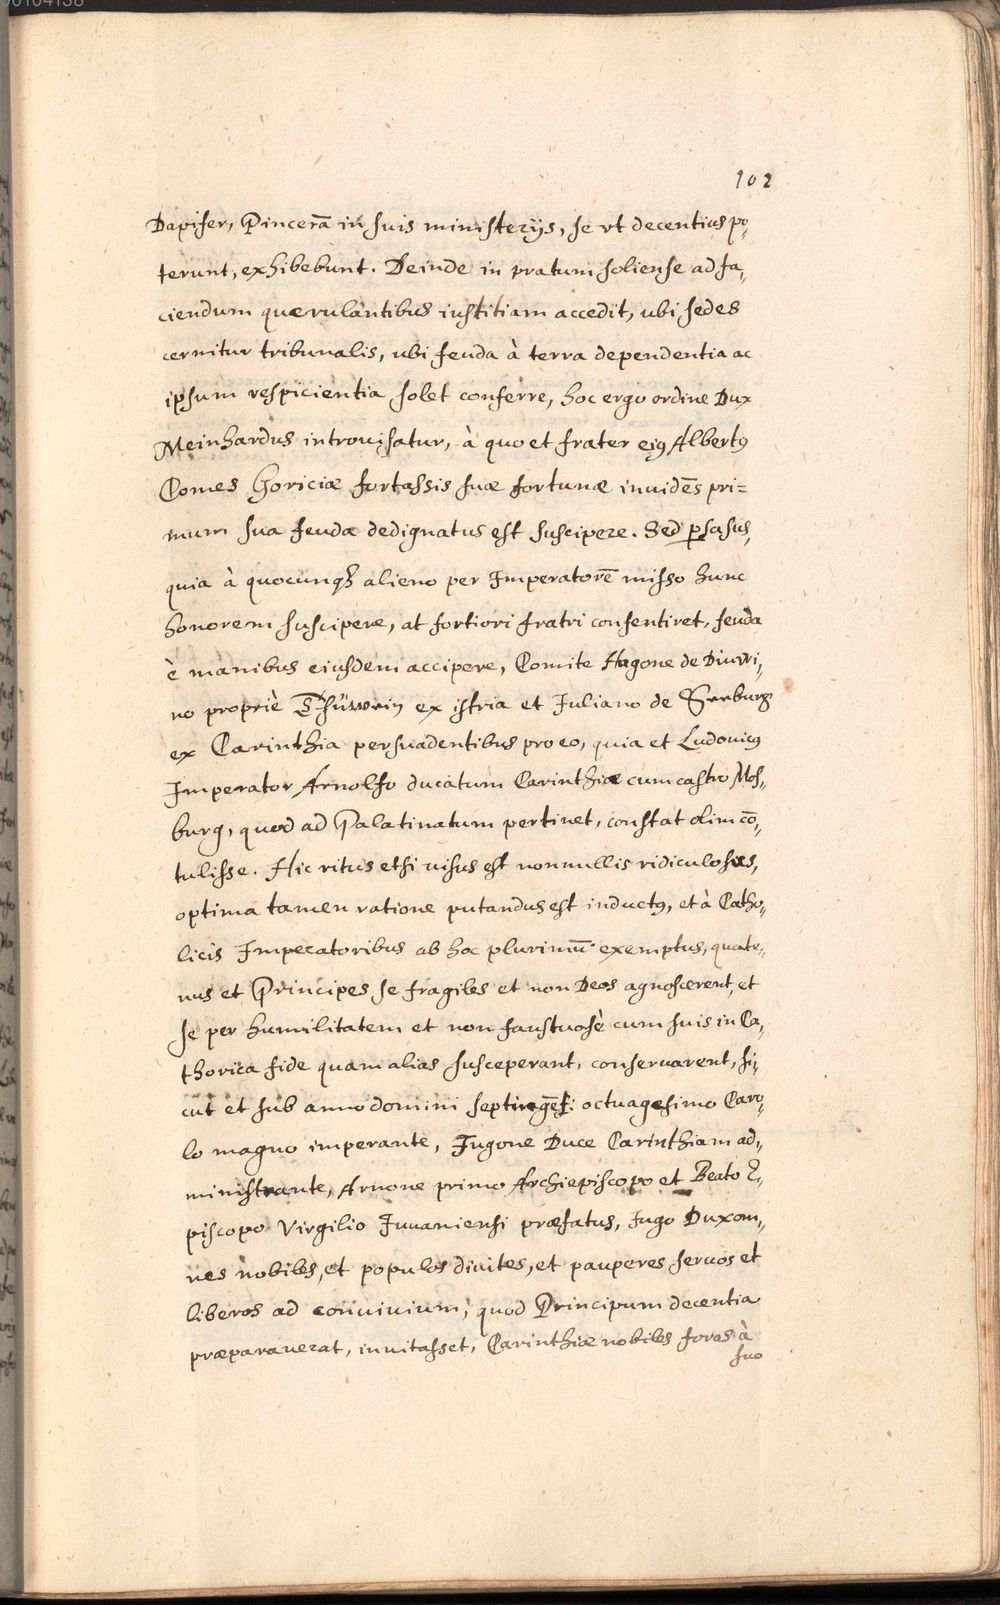 00104138
102
Dapifer, Pincerā in suis ministerijs, se vt decentius po,
terunt, exhibebunt. Deinde in pratum soliense ad fa,
ciendum quærulantibus iustitiam accedit, ubi sedes
cernitur tribunalis, ubi feuda à terra dependentia ac
ipsum respicientia solet conferre, hoc ergo ordine Dux
Meinhardus intronisatur, à quo et frater eiꝰ Albertꝰ
Comes Goriciæ fortassis suæ fortunæ inuidēs pri=
mum sua feuda dedignatus est suscipere. Sed ꝑsasus,
quia à quocunqȝ alieno per Imperatorē misso hunc
honorem suscipere, at fortiori fratri consentiret, feuda
è manibus eiusdem accipere, Comite Hagone de Diuvi,
no propriè Thüwein ex istria et Iuliano de Seeburg
ex Carinthia persuadentibus pro eo, quia et Ludouicꝰ
Imperator Arnolfo ducatum Carinthiæ cum castro Mos,,
burg, quod ad Palatinatum pertinet, constat olim cō,
tulisse. Hic ritus etsi uisus est nonnullis ridiculosus,
optima tamen ratione putandus est inductꝰ, et à Catho,,
licis Imperatoribus ab hoc plurimū exemptus, quate,,
nus et Principes se fragiles et non Deos agnoscerent, et
se per humilitatem et non faustuosè cum suis in Ca,
thorica fide quam alias susceperant, conseruarent, si,
cut et sub anno domini septingēsi: octuagesimo Caro,
lo magno imperante, Iugone Duce Carinthiam ad,,
ministrante, Arnone primo Archiepiscopo et Beato E,,
piscopo Virgilio Iuuaniensi præfatus, Iugo Dux om,,
nes nobiles, et populos diuites, et pauperes seruos et
liberos ad conuiuium, quod Principum decentia
præparauerat, inuitasset, Carinthiæ nobiles foras à
suo